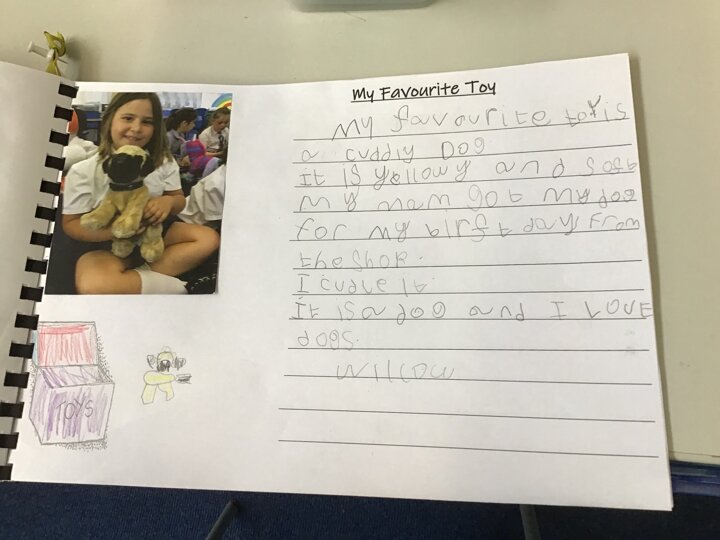 My Favourite Toy
My favourite toy is
a cuddly Dog
It is yellowy and soft
my mam got my dog
for my birft days from
the shop.
I cudle it.
It is a dog and I LOVE
dogs.
Willow
TOYS